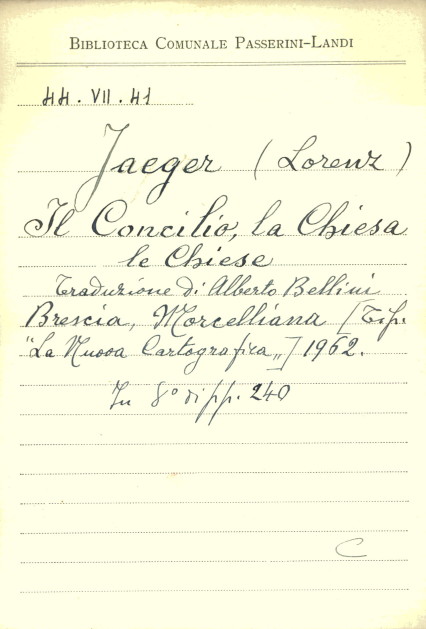 BIBLIOTECA COMUNALE PASSERINI-LANDI
44. VII. 41
Jaeger (Lorenz)
Il Concilio, la Chiesa
le Chiese
Traduzione di Alberto Bellini
Brescia, Morcelliana [Tip.
"La Nuova Cartografica„] 1962.
In 8° di pp. 240
C